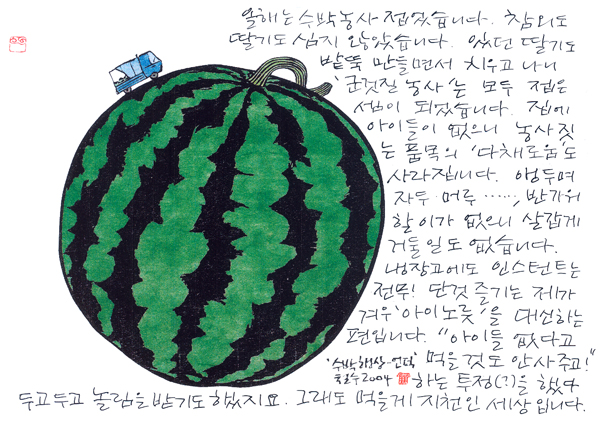 올해는 수박농사 접었습니다. 참외도
딸기도 심지 않았습니다. 있던 딸기도
밭뚝 만들면서 치우고 나니
'군것질 농사'는 모두 접은
셈이 되었습니다. 집에
아이들이 없으니 농사짓
는 품목의 '다채로움'도
사라집니다. 앵두며
자두·머루 ……, 반가워
할 이가 없으니 살갑게
거둘 일도 없습니다.
냉장고에도 인스턴트는
전무! 단것 즐기는 제가
겨우 '아이노릇'을 대신하는
편입니다. "아이들 없다고
먹을 것도 안 사주고!"
하는 투정(?)을 했다
두고두고 놀림을 받기도 했지요. 그래도 먹을게 지천인 세상입니다.
'수박행상-언덕'
철수 2004